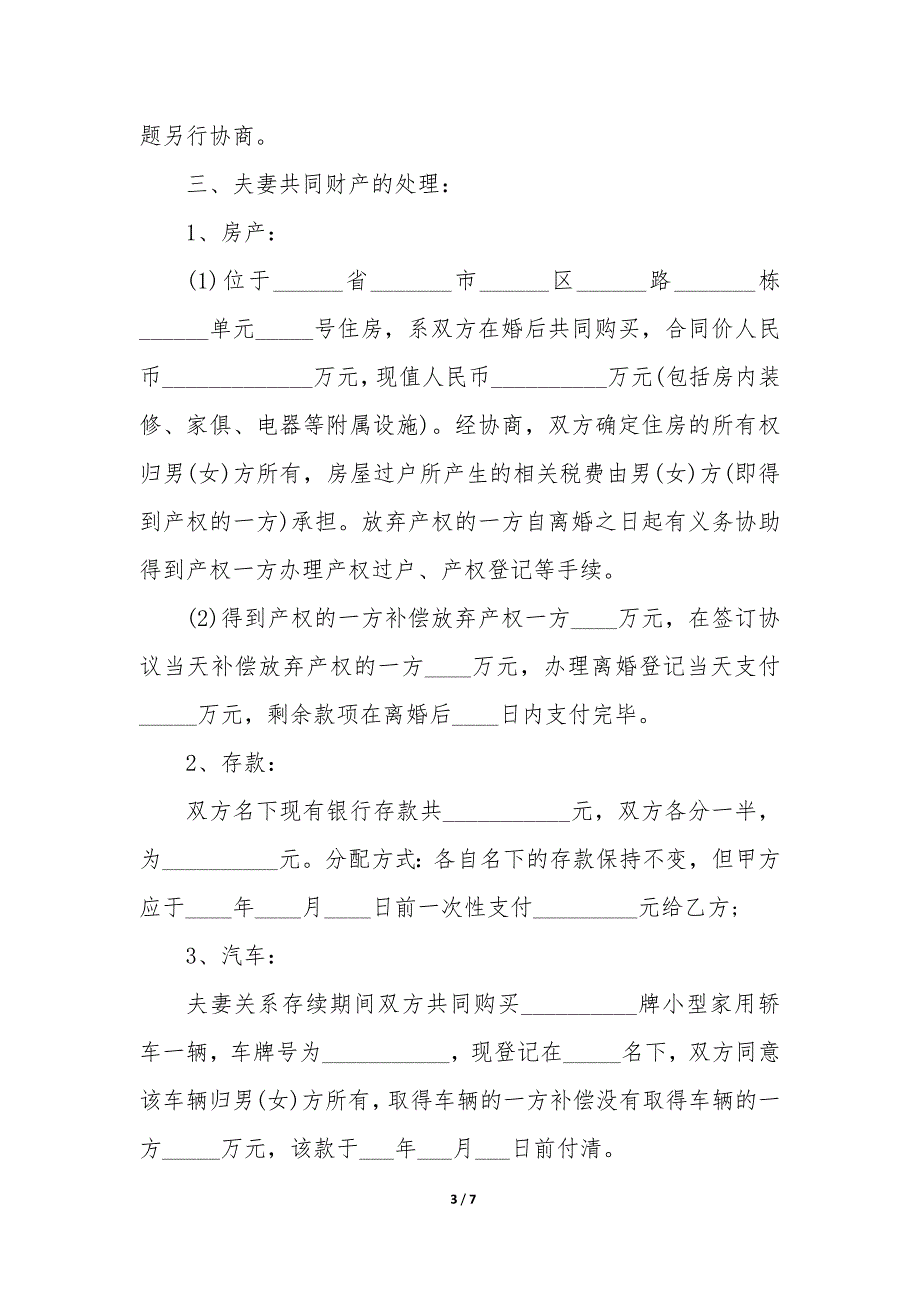 题另行协商。
三、夫妻共同财产的处理：
1、房产：
(1)位于______省_______市______区______路_______栋
______单元_____号住房，系双方在婚后共同购买，合同价人民
币_____________万元，现值人民币__________万元(包括房内装
修、家俱、电器等附属设施)。经协商，双方确定住房的所有权
归男(女)方所有，房屋过户所产生的相关税费由男(女)方(即得
到产权的一方)承担。放弃产权的一方自离婚之日起有义务协助
得到产权一方办理产权过户、产权登记等手续。
(2)得到产权的一方补偿放弃产权一方____万元，在签订协
议当天补偿放弃产权的一方____万元，办理离婚登记当天支付
_____万元，剩余款项在离婚后____日内支付完毕。
2、存款：
双方名下现有银行存款共___________元，双方各分一半，
为__________元。分配方式：各自名下的存款保持不变，但甲方
应于____年____月____日前一次性支付_________元给乙方;
3、汽车：
夫妻关系存续期间双方共同购买__________牌小型家用轿
车一辆，车牌号为___________，现登记在_____名下，双方同意
该车辆归男(女)方所有，取得车辆的一方补偿没有取得车辆的一
方_____万元，该款于___年___月___日前付清。
3 / 7